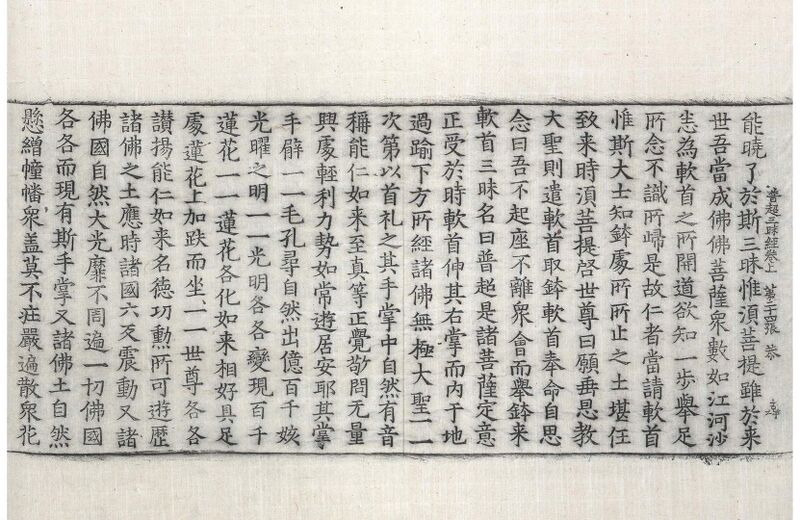 能曉了於斯三昧惟須菩提雖於來
普超三昧經卷上 第二十四張 恭
世吾當成佛佛菩薩衆數如江河沙
悉為軟首之所開道欲知一步舉足
所念不識所歸是故仁者當請軟首
惟斯大士知鉢處所所止之土堪任
致来時須菩提啓世尊曰願垂恩教
大聖則遣軟首取鉢軟首奉命自思
念曰吾不起座不離衆會而舉鉢来
軟首三昧名曰普超是諸菩薩定意
正受於時軟首伸其右掌而内于地
過踰下方所經諸佛無極大聖一一
次第以首礼之其手掌中自然有音
稱能仁如来至真等正覺敬問无量
興處輕利力勢如常遊居安耶其掌
手臂一一毛孔尋自然出億百千姟
光曜之明一一光明各各變現百千
蓮花一一蓮花各化如来相好具足
處蓮花上加趺而坐一一世尊各各
讃揚能仁如来名德功勲所可遊歴
諸佛之土應時諸國六反震動又諸
佛國自然大光靡不周遍一切佛國
各各而現有斯手掌又諸佛土自然
懸繒幢幡衆盖莫不莊嚴遍散衆花